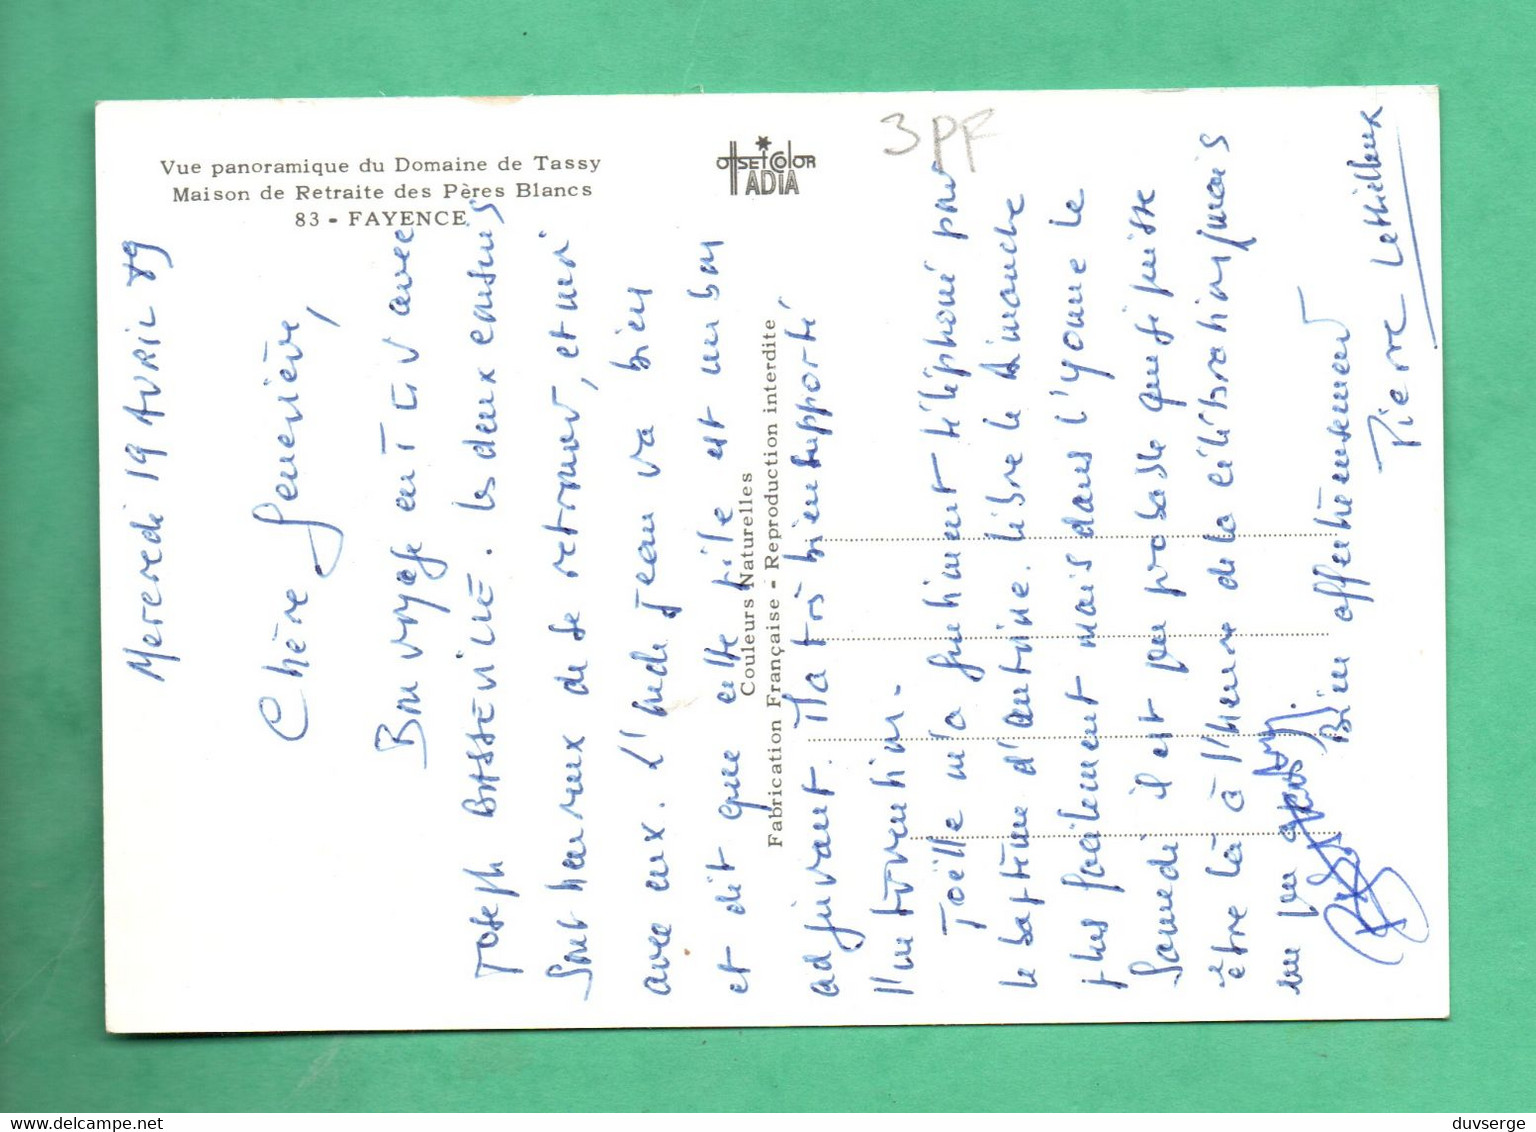 Vue panoramique du Domaine de Tassy
Maison de Retraite des Pères Blancs
83 - FAYENCE
OFFSET COLOR
ADIA
3 PF
Couleurs Naturelles
Fabrication Française - Reproduction interdite
Mercredi 19 AVRIL 89
Chère Geneviève,
Bon voyage en TGV avec
Joseph BASSEVILLE. les deux cousins
sont heureux de se retrouver, et moi
avec eux. L'oncle Jean va bien
et dit que cette pile est un bon
adjuvant. Il a très bien supporté
l'intervention.
Joëlle m'a gentiment téléphoné pour
le baptême d'Antoine. Libre le dimanche
plus facilement mais dans l'Yonne le
Samedi il est peu probable que je puisse
être là à l'heure de la célébration, mais
un peu
Bien affectueusement
Pierre Lethielleux
duvserge